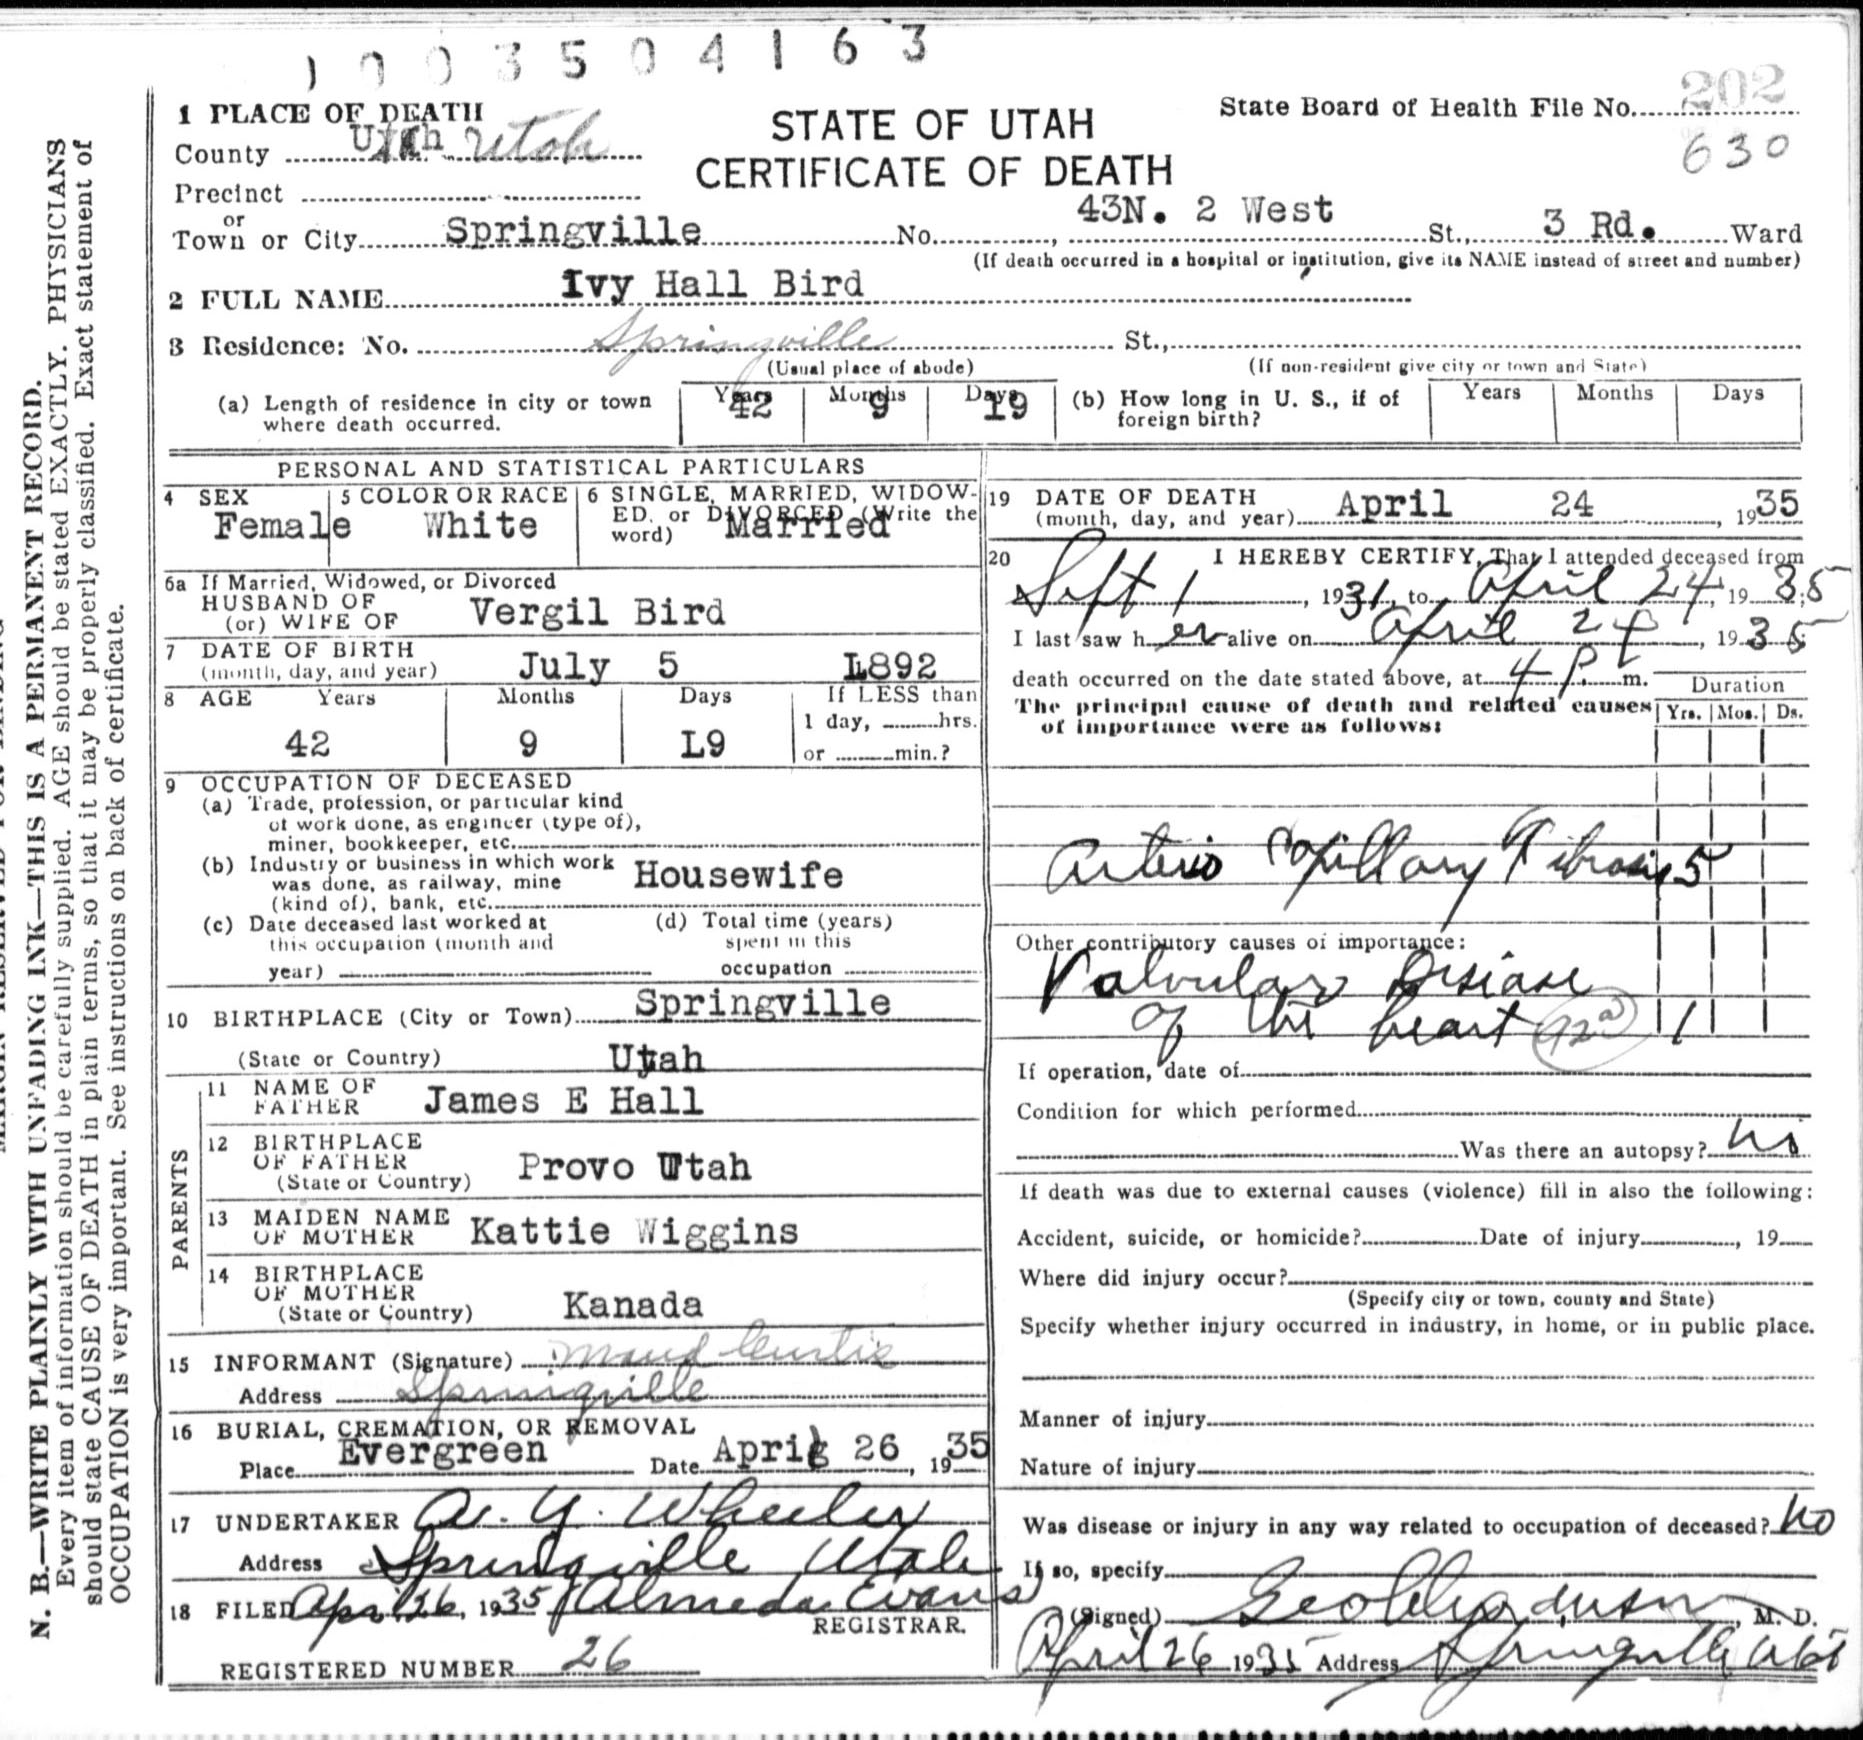 1003504163
202
630
1 PLACE OF DEATH
STATE OF UTAH
CERTIFICATE OF DEATH
State Board of Health File No.
County Utah Utah
Precinct
or
Town or City Springville No. , 43N. 2 West St., 3 Rd. Ward
(If death occurred in a hospital or institution, give its NAME instead of street and number)
2 FULL NAME Ivy Hall Bird
3 Residence: No. Springville St.,
(Usual place of abode) (If non-resident give city or town and State)
(a) Length of residence in city or town where death occurred. Years 42 Months 9 Days 19
(b) How long in U. S., if of foreign birth? Years Months Days
PERSONAL AND STATISTICAL PARTICULARS
4 SEX Female
5 COLOR OR RACE White
6 SINGLE, MARRIED, WIDOW-
ED, or DIVORCED (Write the
word) Married
6a If Married, Widowed, or Divorced
HUSBAND OF
(or) WIFE OF Vergil Bird
7 DATE OF BIRTH
(month, day, and year) July 5 L892
8 AGE Years 42 Months 9 Days L9
If LESS than
1 day, hrs.
or min.?
9 OCCUPATION OF DECEASED
(a) Trade, profession, or particular kind
of work done, as engineer (type of),
miner, bookkeeper, etc.
(b) Industry or business in which work
was done, as railway, mine
(kind of), bank, etc. Housewife
(c) Date deceased last worked at
this occupation (month and
year)
(d) Total time (years)
spent in this
occupation
10 BIRTHPLACE (City or Town) Springville
(State or Country) Utah
PARENTS
11 NAME OF
FATHER James E Hall
12 BIRTHPLACE
OF FATHER
(State or Country) Provo Utah
13 MAIDEN NAME
OF MOTHER Kattie Wiggins
14 BIRTHPLACE
OF MOTHER
(State or Country) Kanada
15 INFORMANT (Signature) Maud Curtis
Address Springville
16 BURIAL, CREMATION, OR REMOVAL
Place Evergreen Date April 26, 1935
17 UNDERTAKER A. Y. Wheeler
Address Springville Utah
18 FILED Apr. 26, 1935 Almeda Evans
REGISTRAR.
REGISTERED NUMBER 26
19 DATE OF DEATH
(month, day, and year) April 24, 1935
20 I HEREBY CERTIFY, That I attended deceased from
Sept 1, 1931, to April 24, 1935
I last saw her alive on April 24, 1935
death occurred on the date stated above, at 4 P. m.
Duration
The principal cause of death and related causes
of importance were as follows:
Yrs. Mos. Ds.
Arterio Capillary Fibrosis 5
Other contributory causes of importance:
Valvular Disease
of the heart 92a 1
If operation, date of
Condition for which performed
Was there an autopsy? no
If death was due to external causes (violence) fill in also the following:
Accident, suicide, or homicide? Date of injury , 19
Where did injury occur?
(Specify city or town, county and State)
Specify whether injury occurred in industry, in home, or in public place.
Manner of injury
Nature of injury
Was disease or injury in any way related to occupation of deceased? no
If so, specify
(Signed) Geo , M. D.
April 26 1935 Address Springville Utah
N. B.—WRITE PLAINLY WITH UNFADING INK—THIS IS A PERMANENT RECORD.
Every item of information should be carefully supplied. AGE should be stated EXACTLY. PHYSICIANS
should state CAUSE OF DEATH in plain terms, so that it may be properly classified. Exact statement of
OCCUPATION is very important. See instructions on back of certificate.